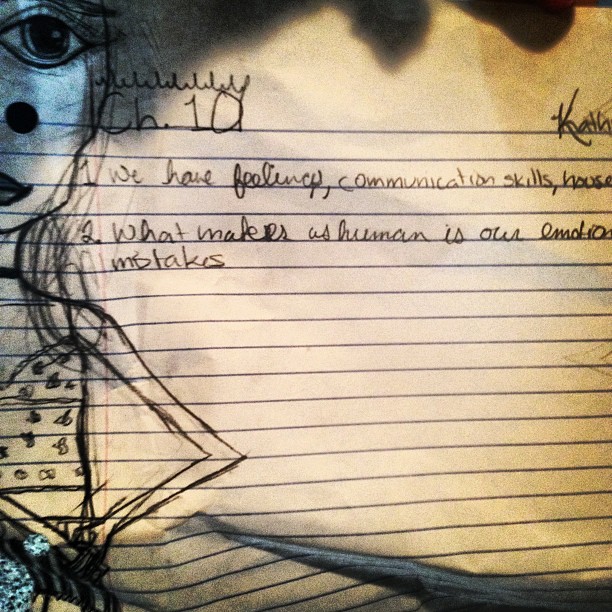 Ch. 10
Kath
1 We have feelings, communication skills, house
2. What makes us human is our emotion
mistakes